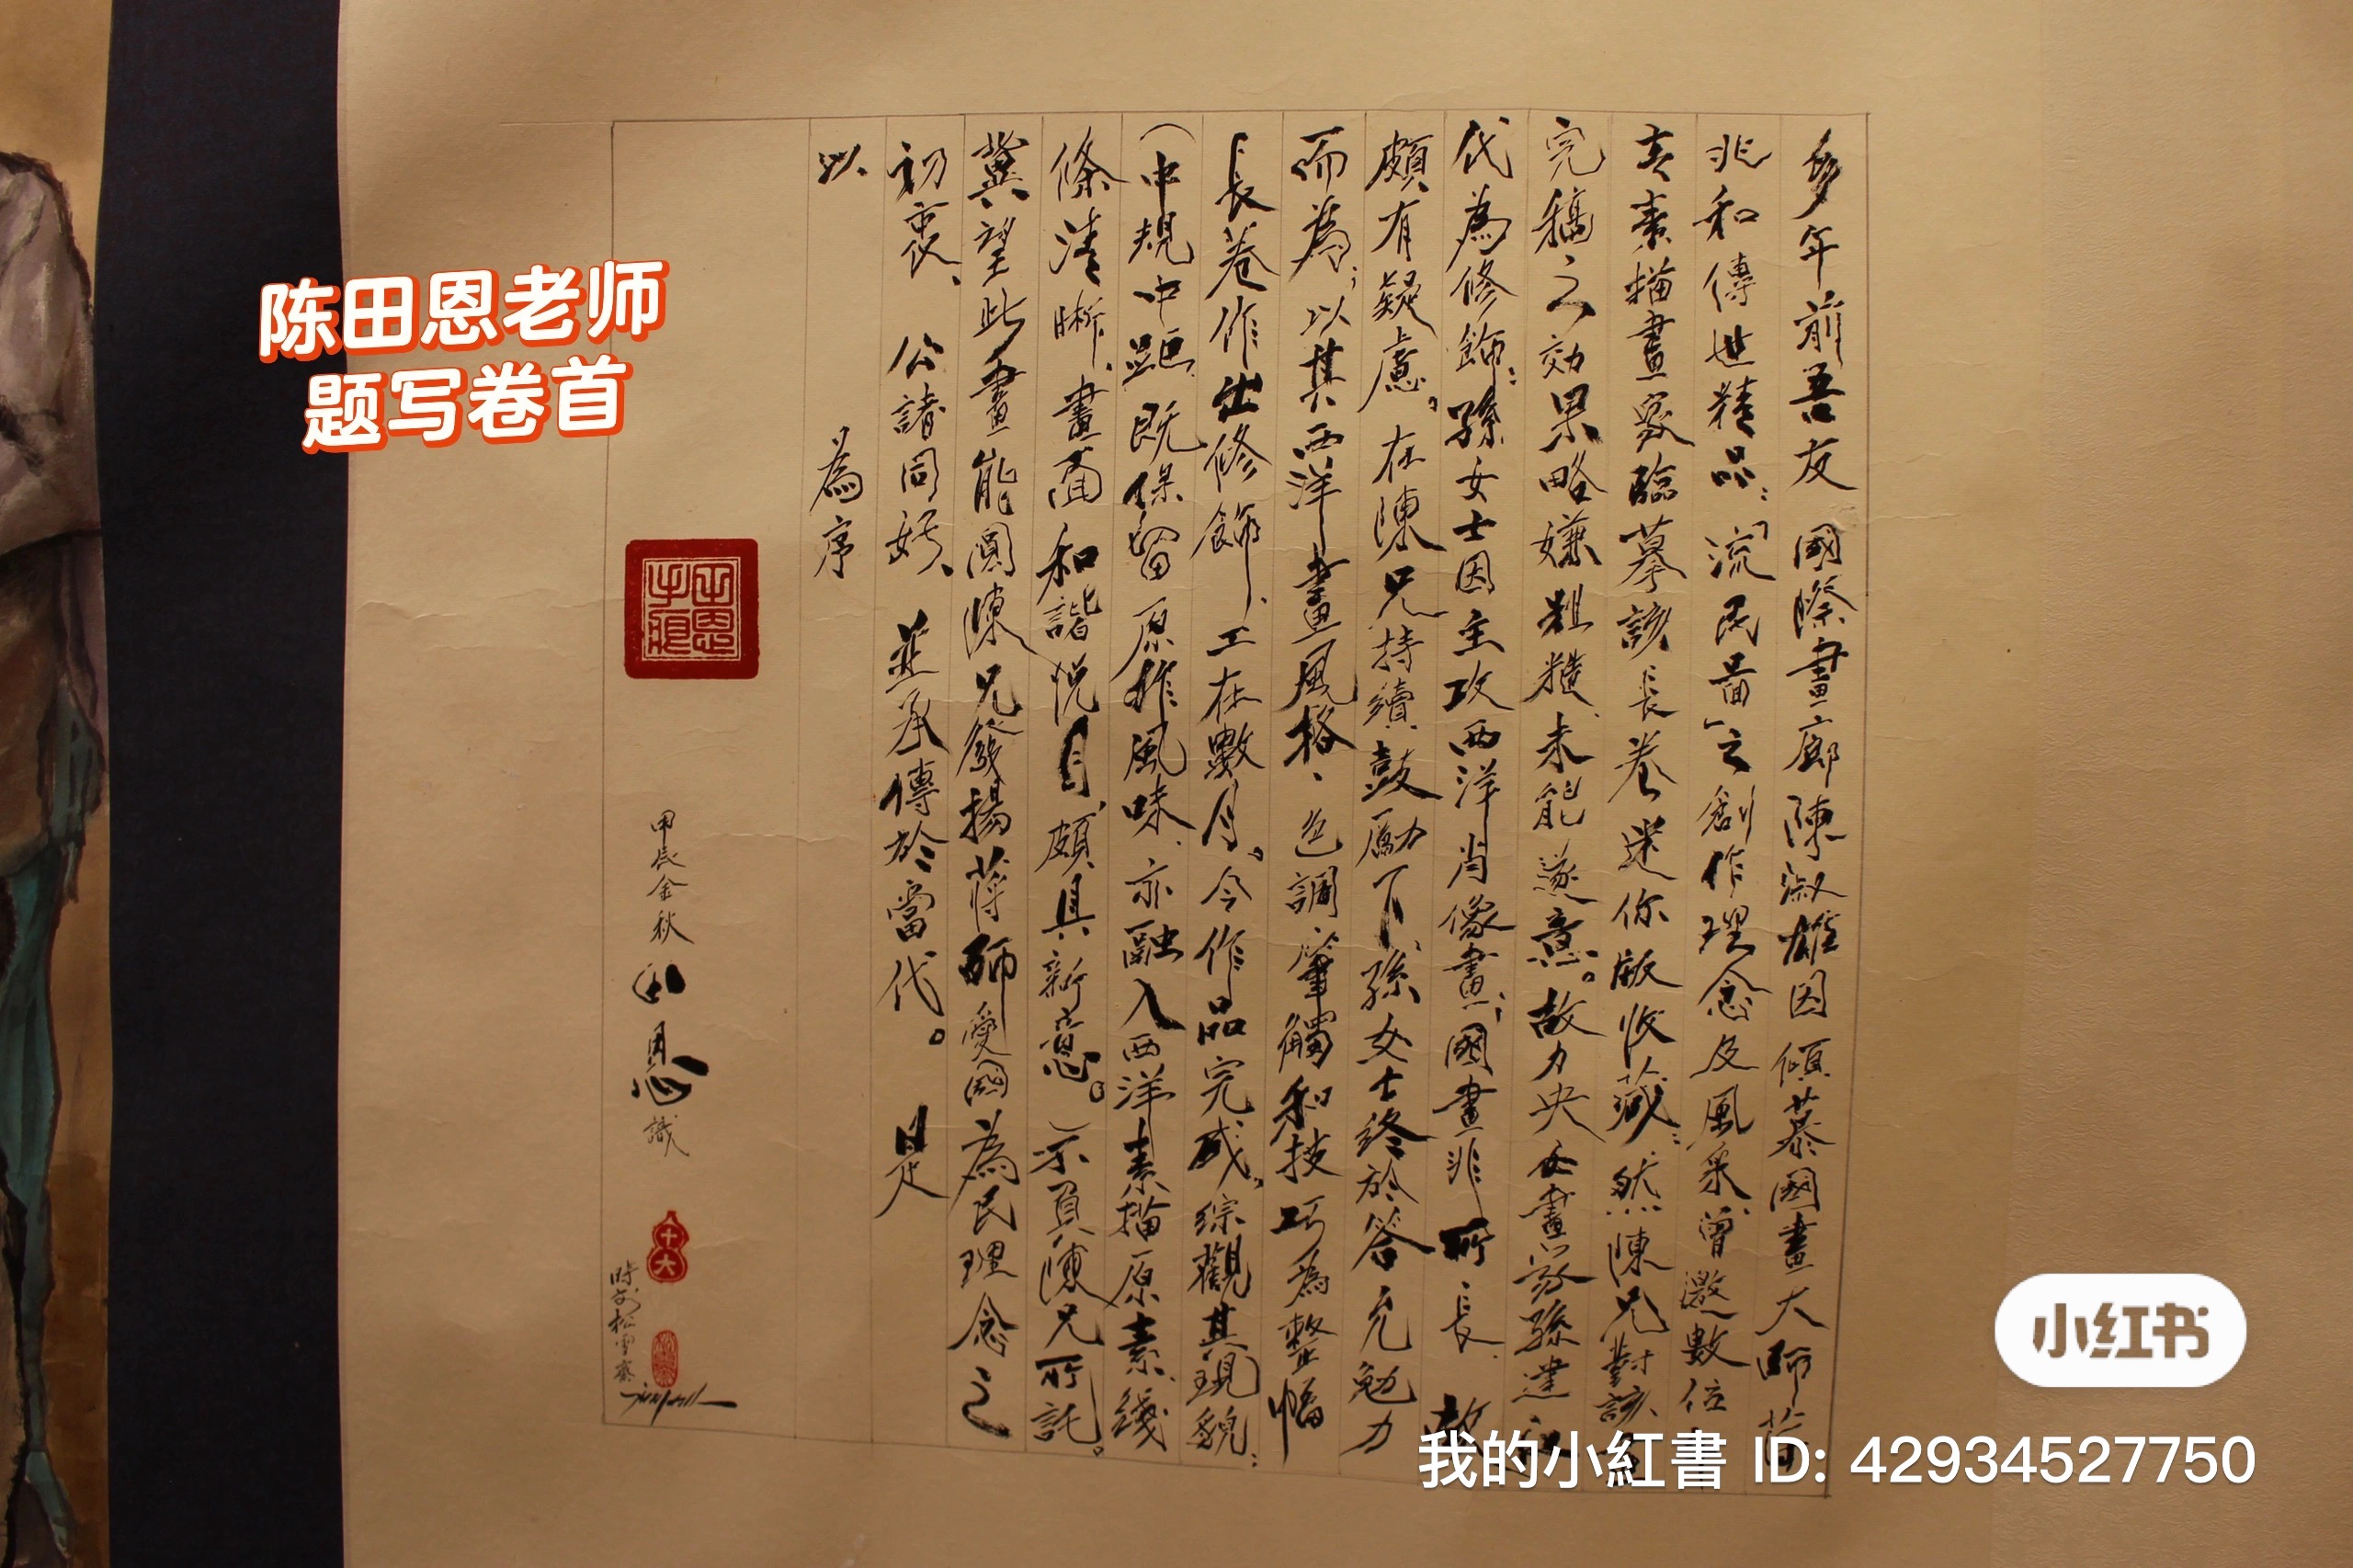 多年前吾友 國際畫廊陳淑雄因傾慕國畫大師蔣
兆和傳世精品：「流民圖」之創作理念及風采、曾邀數位
素描畫家臨摹該長卷迷你版收藏；然陳兄對該
完稿之效果略嫌粗糙、未能遂意。故力央女畫家孫建
代為修飾；孫女士因主攻西洋肖像畫；國畫非所長、故
頗有疑慮。在陳兄持續鼓勵下、孫女士終於答允勉力
而為；以其西洋畫風格、色調、筆觸和技巧為整幅
長卷作出修飾、工在數月。今作品完成、綜觀其現貌：
（中規中距、既保留原作風味、亦融入西洋素描原素、綫
條清晰、畫面和諧悅目、頗具新意。）不負陳兄所託。
冀望此畫能圓陳兄發揚蔣師愛國為民理念之
初衷、 公諸同好、 並承傳於當代。 是
以 為序
甲辰金秋 田恩 識
十六
時於松雪齋
陈田恩老师
题写卷首
小红书
我的小紅書 ID: 42934527750